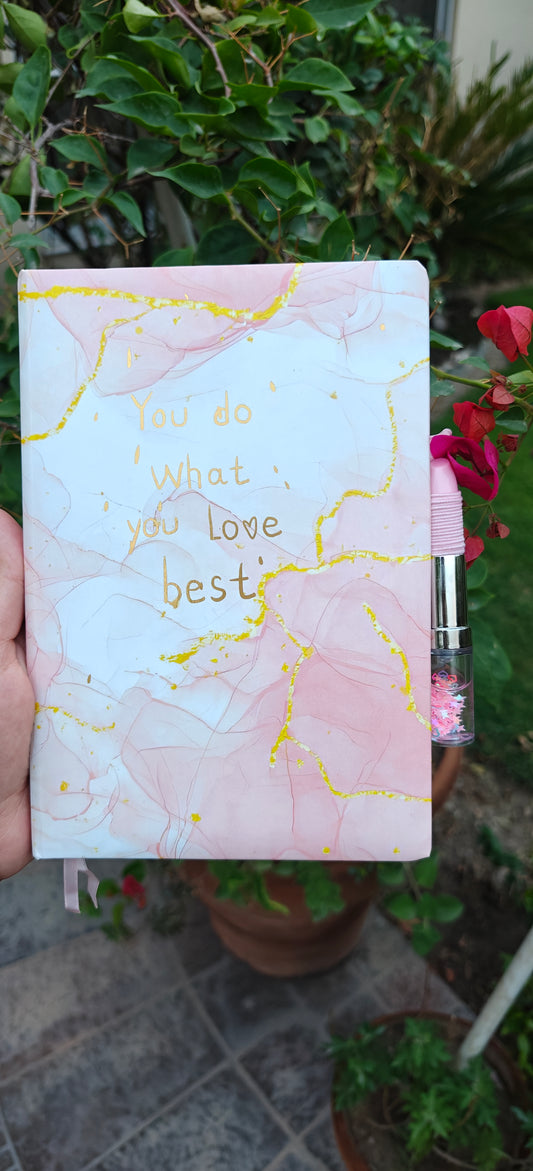 You do
What
you Love
best